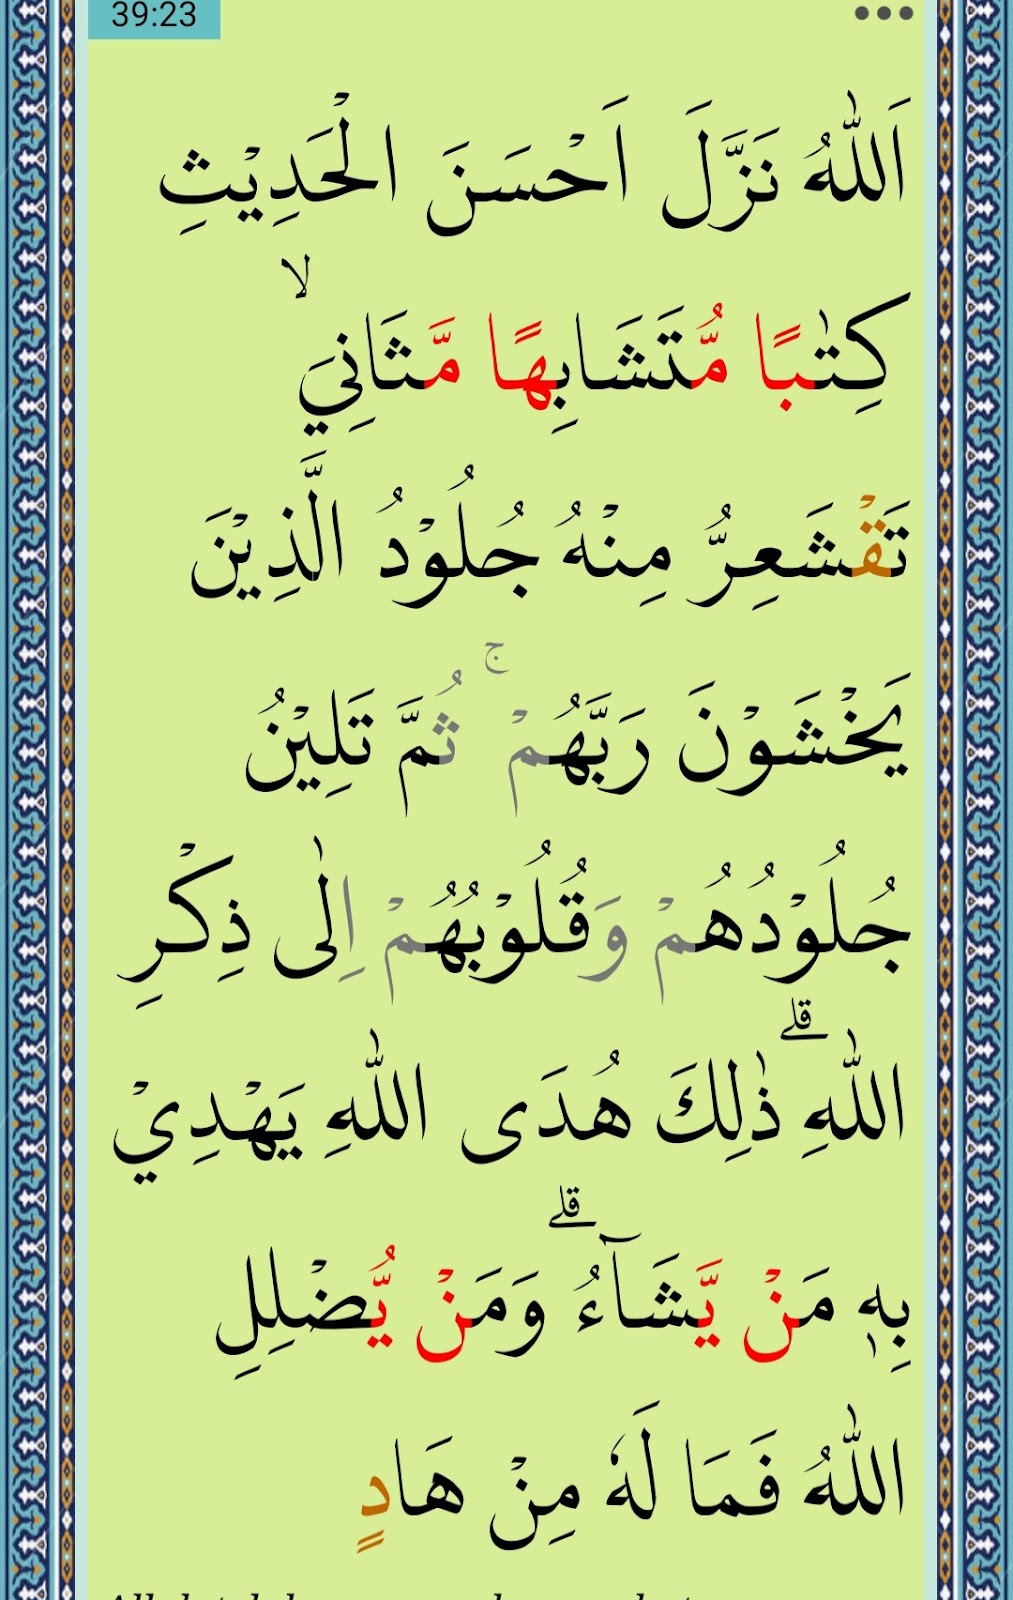 39:23
اَللّٰهُ نَزَّلَ اَحْسَنَ الْحَدِيْثِ
كِتٰبًا مُّتَشَابِهًا مَّثَانِيَ ۙ
تَقْشَعِرُّ مِنْهُ جُلُوْدُ الَّذِيْنَ
يَخْشَوْنَ رَبَّهُمْ ۚ ثُمَّ تَلِيْنُ
جُلُوْدُهُمْ وَقُلُوْبُهُمْ اِلٰى ذِكْرِ
اللّٰهِ ۗ ذٰلِكَ هُدَى اللّٰهِ يَهْدِيْ
بِهٖ مَنْ يَّشَاۤءُ ۗ وَمَنْ يُّضْلِلِ
اللّٰهُ فَمَا لَهٗ مِنْ هَادٍ